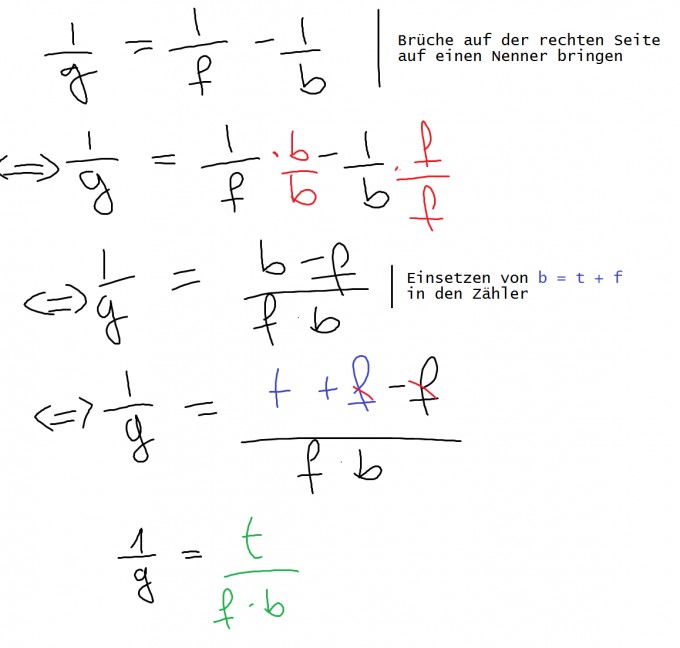 1/g = 1/f - 1/b | Brüche auf der rechten Seite
auf einen Nenner bringen
<=> 1/g = 1/f · b/b - 1/b · f/f
<=> 1/g = (b - f)/(f · b) | Einsetzen von b = t + f
in den Zähler
<=> 1/g = (t + f - f)/(f · b)
1/g = t/(f · b)